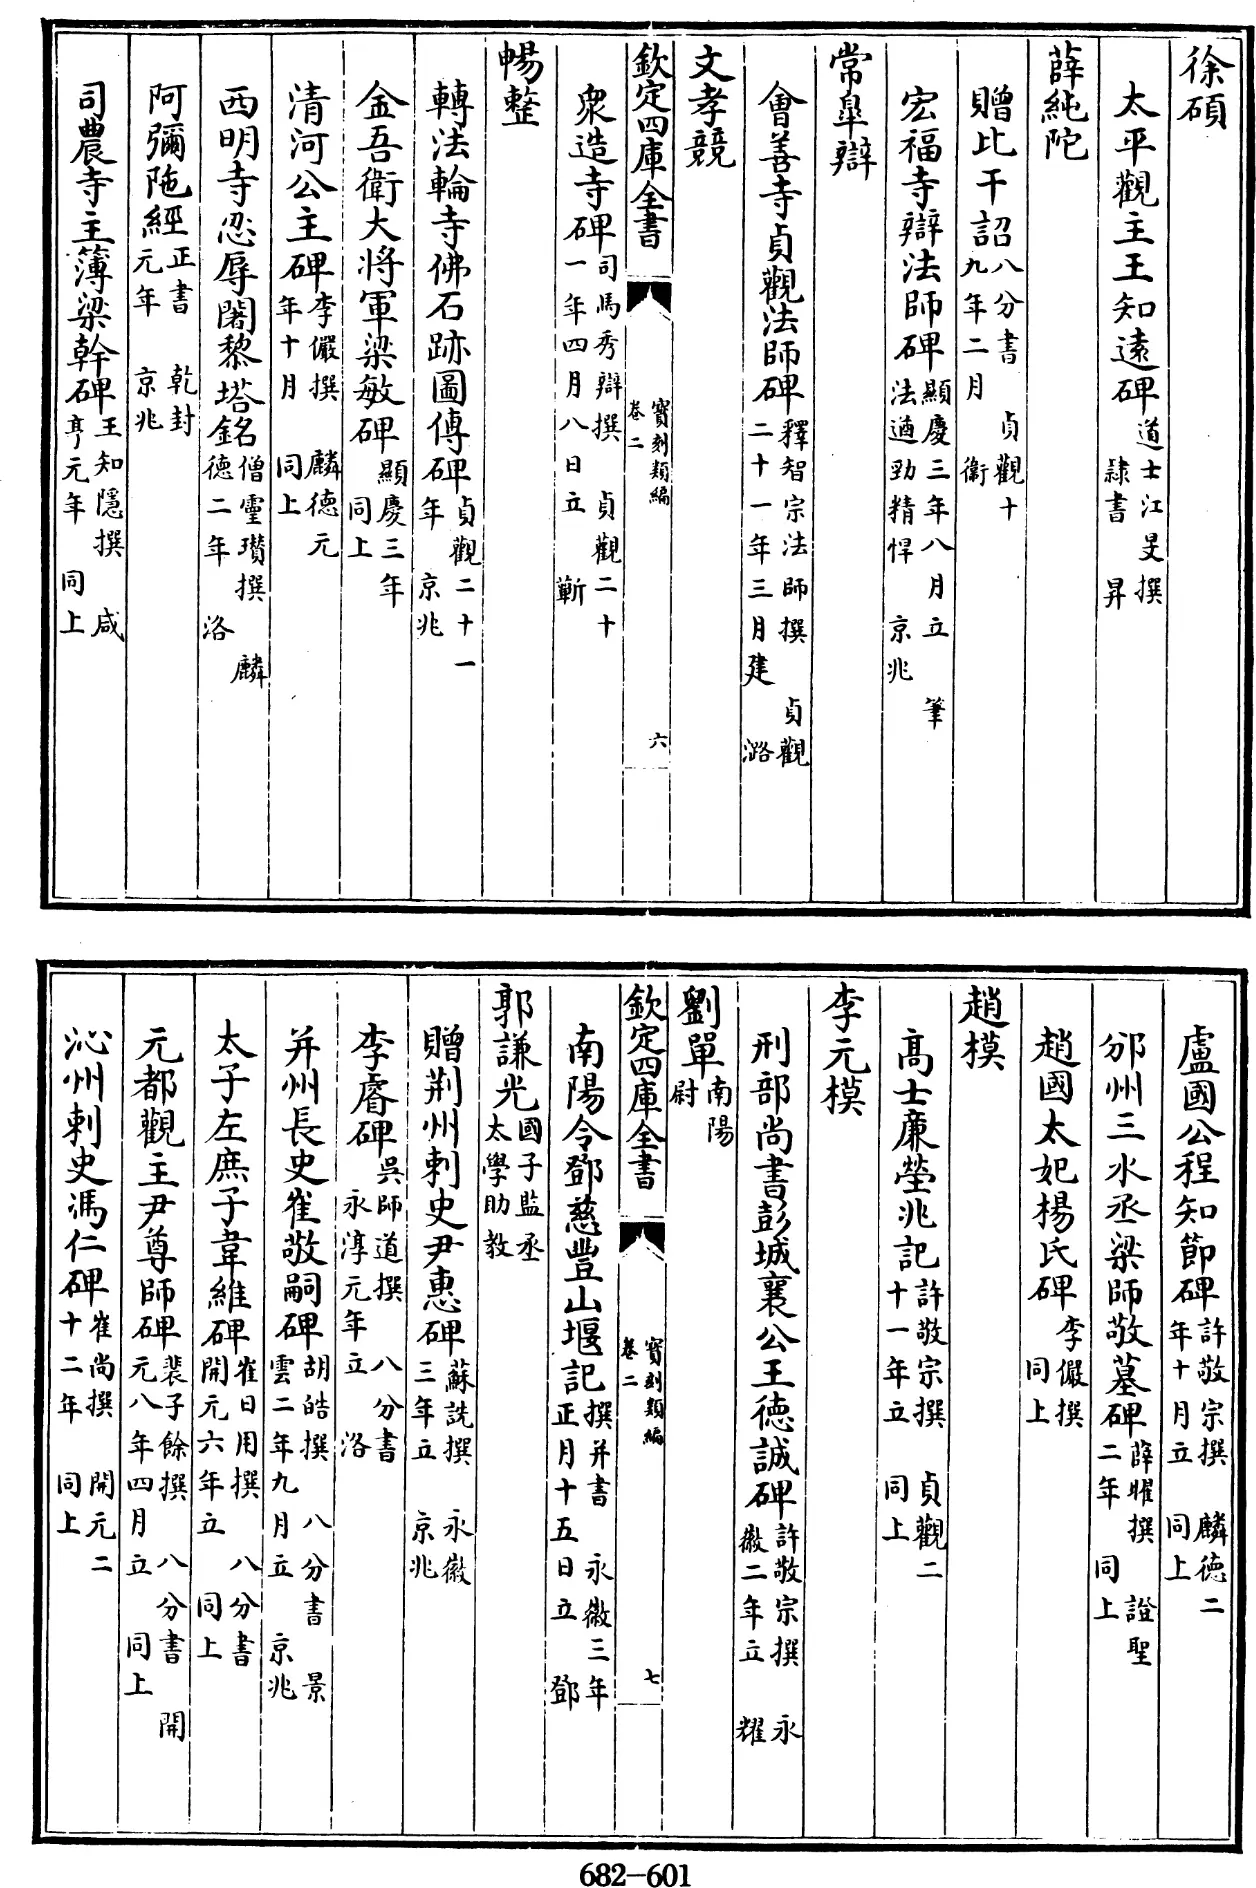 徐碩
太平觀主王知遠碑道士江旻撰隸書 昇
薛純陀
贈比干詔八分書 貞觀十九年二月 衞
宏福寺辯法師碑顯慶三年八月立 筆法遒勁精悍 京兆
常㬂辯
會善寺貞觀法師碑釋智宗法師撰 貞觀二十一年三月建 潞
文孝競
欽定四庫全書
寳刻類編
卷二
六
衆造寺碑司馬秀辯撰 貞觀二十一年四月八日立 蘄
暢整
轉法輪寺佛石跡圖傳碑貞觀二十一年 京兆
金吾衛大將軍梁敏碑顯慶三年 同上
清河公主碑李儼撰 麟德元年十月 同上
西明寺忍辱闍黎塔銘僧靈瓚撰 麟德二年 洛
阿彌陁經正書 乾封元年 京兆
司農寺主簿梁幹碑王知隱撰 咸亨元年 同上
盧國公程知節碑許敬宗撰 麟德二年十月立 同上
邠州三水丞梁師敬墓碑薛曜撰 證聖二年 同上
趙國太妃楊氏碑李儼撰 同上
趙模
高士廉塋兆記許敬宗撰 貞觀二十一年立 同上
李元模
刑部尚書彭城襄公王德誠碑許敬宗撰 永徽二年立 耀
劉單南陽尉
欽定四庫全書
寳刻類編
卷二
七
南陽令鄧慈豐山堰記撰并書 永徽三年正月十五日立 鄧
郭謙光國子監丞太學助教
贈荆州刺史尹惠碑蘇詵撰 永徽三年立 京兆
李睿碑吳師道撰 八分書 永淳元年立 洛
并州長史崔敬嗣碑胡皓撰 八分書 景雲二年九月立 京兆
太子左庶子韋維碑崔日用撰 八分書 開元六年立 同上
元都觀主尹尊師碑裴子餘撰 八分書 開元八年四月立 同上
沁州刺史馮仁碑崔尚撰 開元二十二年 同上
682-601